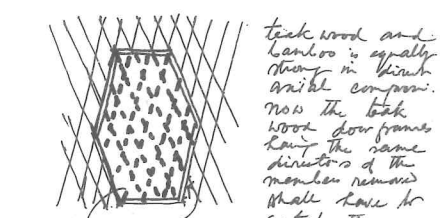 teak wood and
bamboo is equally
strong in direct
axial compossi.
now the teak
wood dowframes
having the same
directors of the
members removed
shall have to